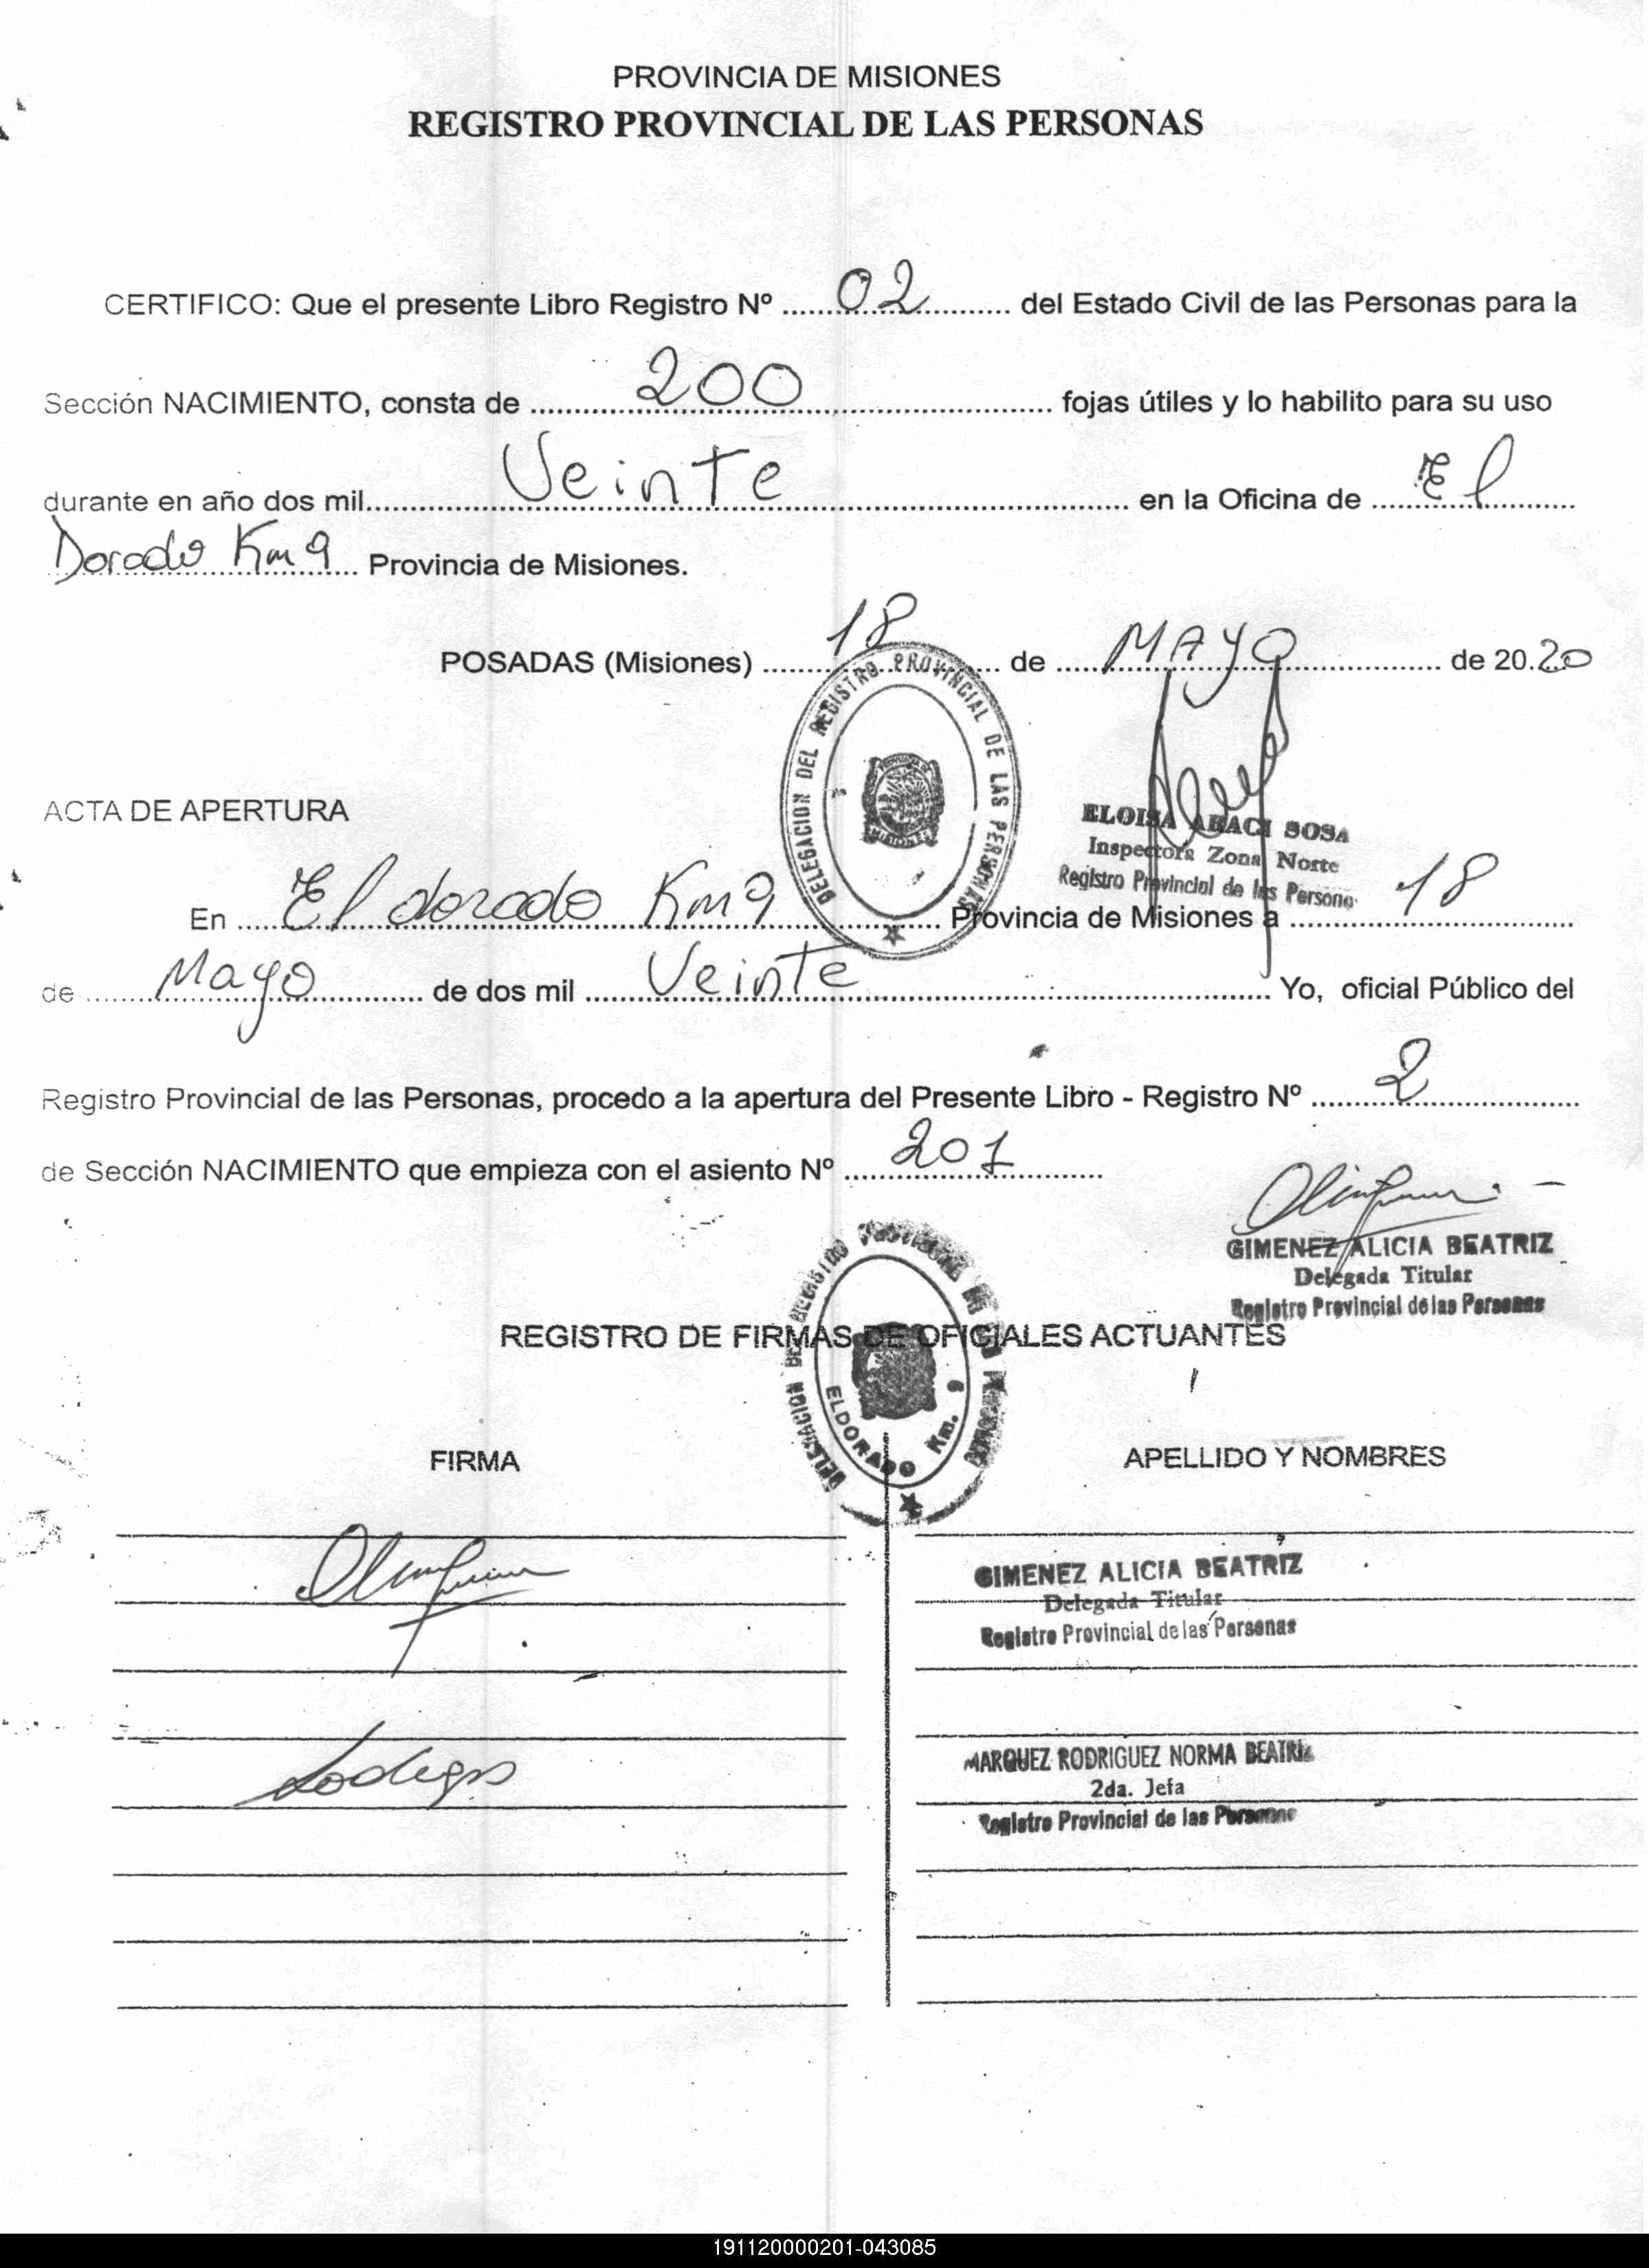 PROVINCIA DE MISIONES
REGISTRO PROVINCIAL DE LAS PERSONAS
CERTIFICO: Que el presente Libro Registro Nº ...... 02 ...... del Estado Civil de las Personas para la
Sección NACIMIENTO, consta de ...... 200 ...... fojas útiles y lo habilito para su uso
durante en año dos mil ...... Veinte ...... en la Oficina de ...... El ......
Dorado Km 9 ...... Provincia de Misiones.
POSADAS (Misiones) ...... 18 ...... de ...... MAYO ...... de 20.20
DELEGACION DEL REGISTRO PROVINCIAL DE LAS PERSONAS
ELOISA ARACI SOSA
Inspectora Zona Norte
Registro Provincial de las Persona
ACTA DE APERTURA
En ...... El dorado Km 9 ...... Provincia de Misiones a ...... 18 ......
de ...... Mayo ...... de dos mil ...... Veinte ...... Yo, oficial Público del
Registro Provincial de las Personas, procedo a la apertura del Presente Libro - Registro Nº ...... 2 ......
de Sección NACIMIENTO que empieza con el asiento Nº ...... 201 ......
GIMENEZ ALICIA BEATRIZ
Delegada Titular
Registro Provincial de las Personas
REGISTRO DE FIRMAS DE OFICIALES ACTUANTES
ELDORADO Km. 9
FIRMA
APELLIDO Y NOMBRES
GIMENEZ ALICIA BEATRIZ
Delegada Titular
Registro Provincial de las Personas
MARQUEZ RODRIGUEZ NORMA BEATRIZ
2da. Jefa
Registro Provincial de las Personas
191120000201-043085